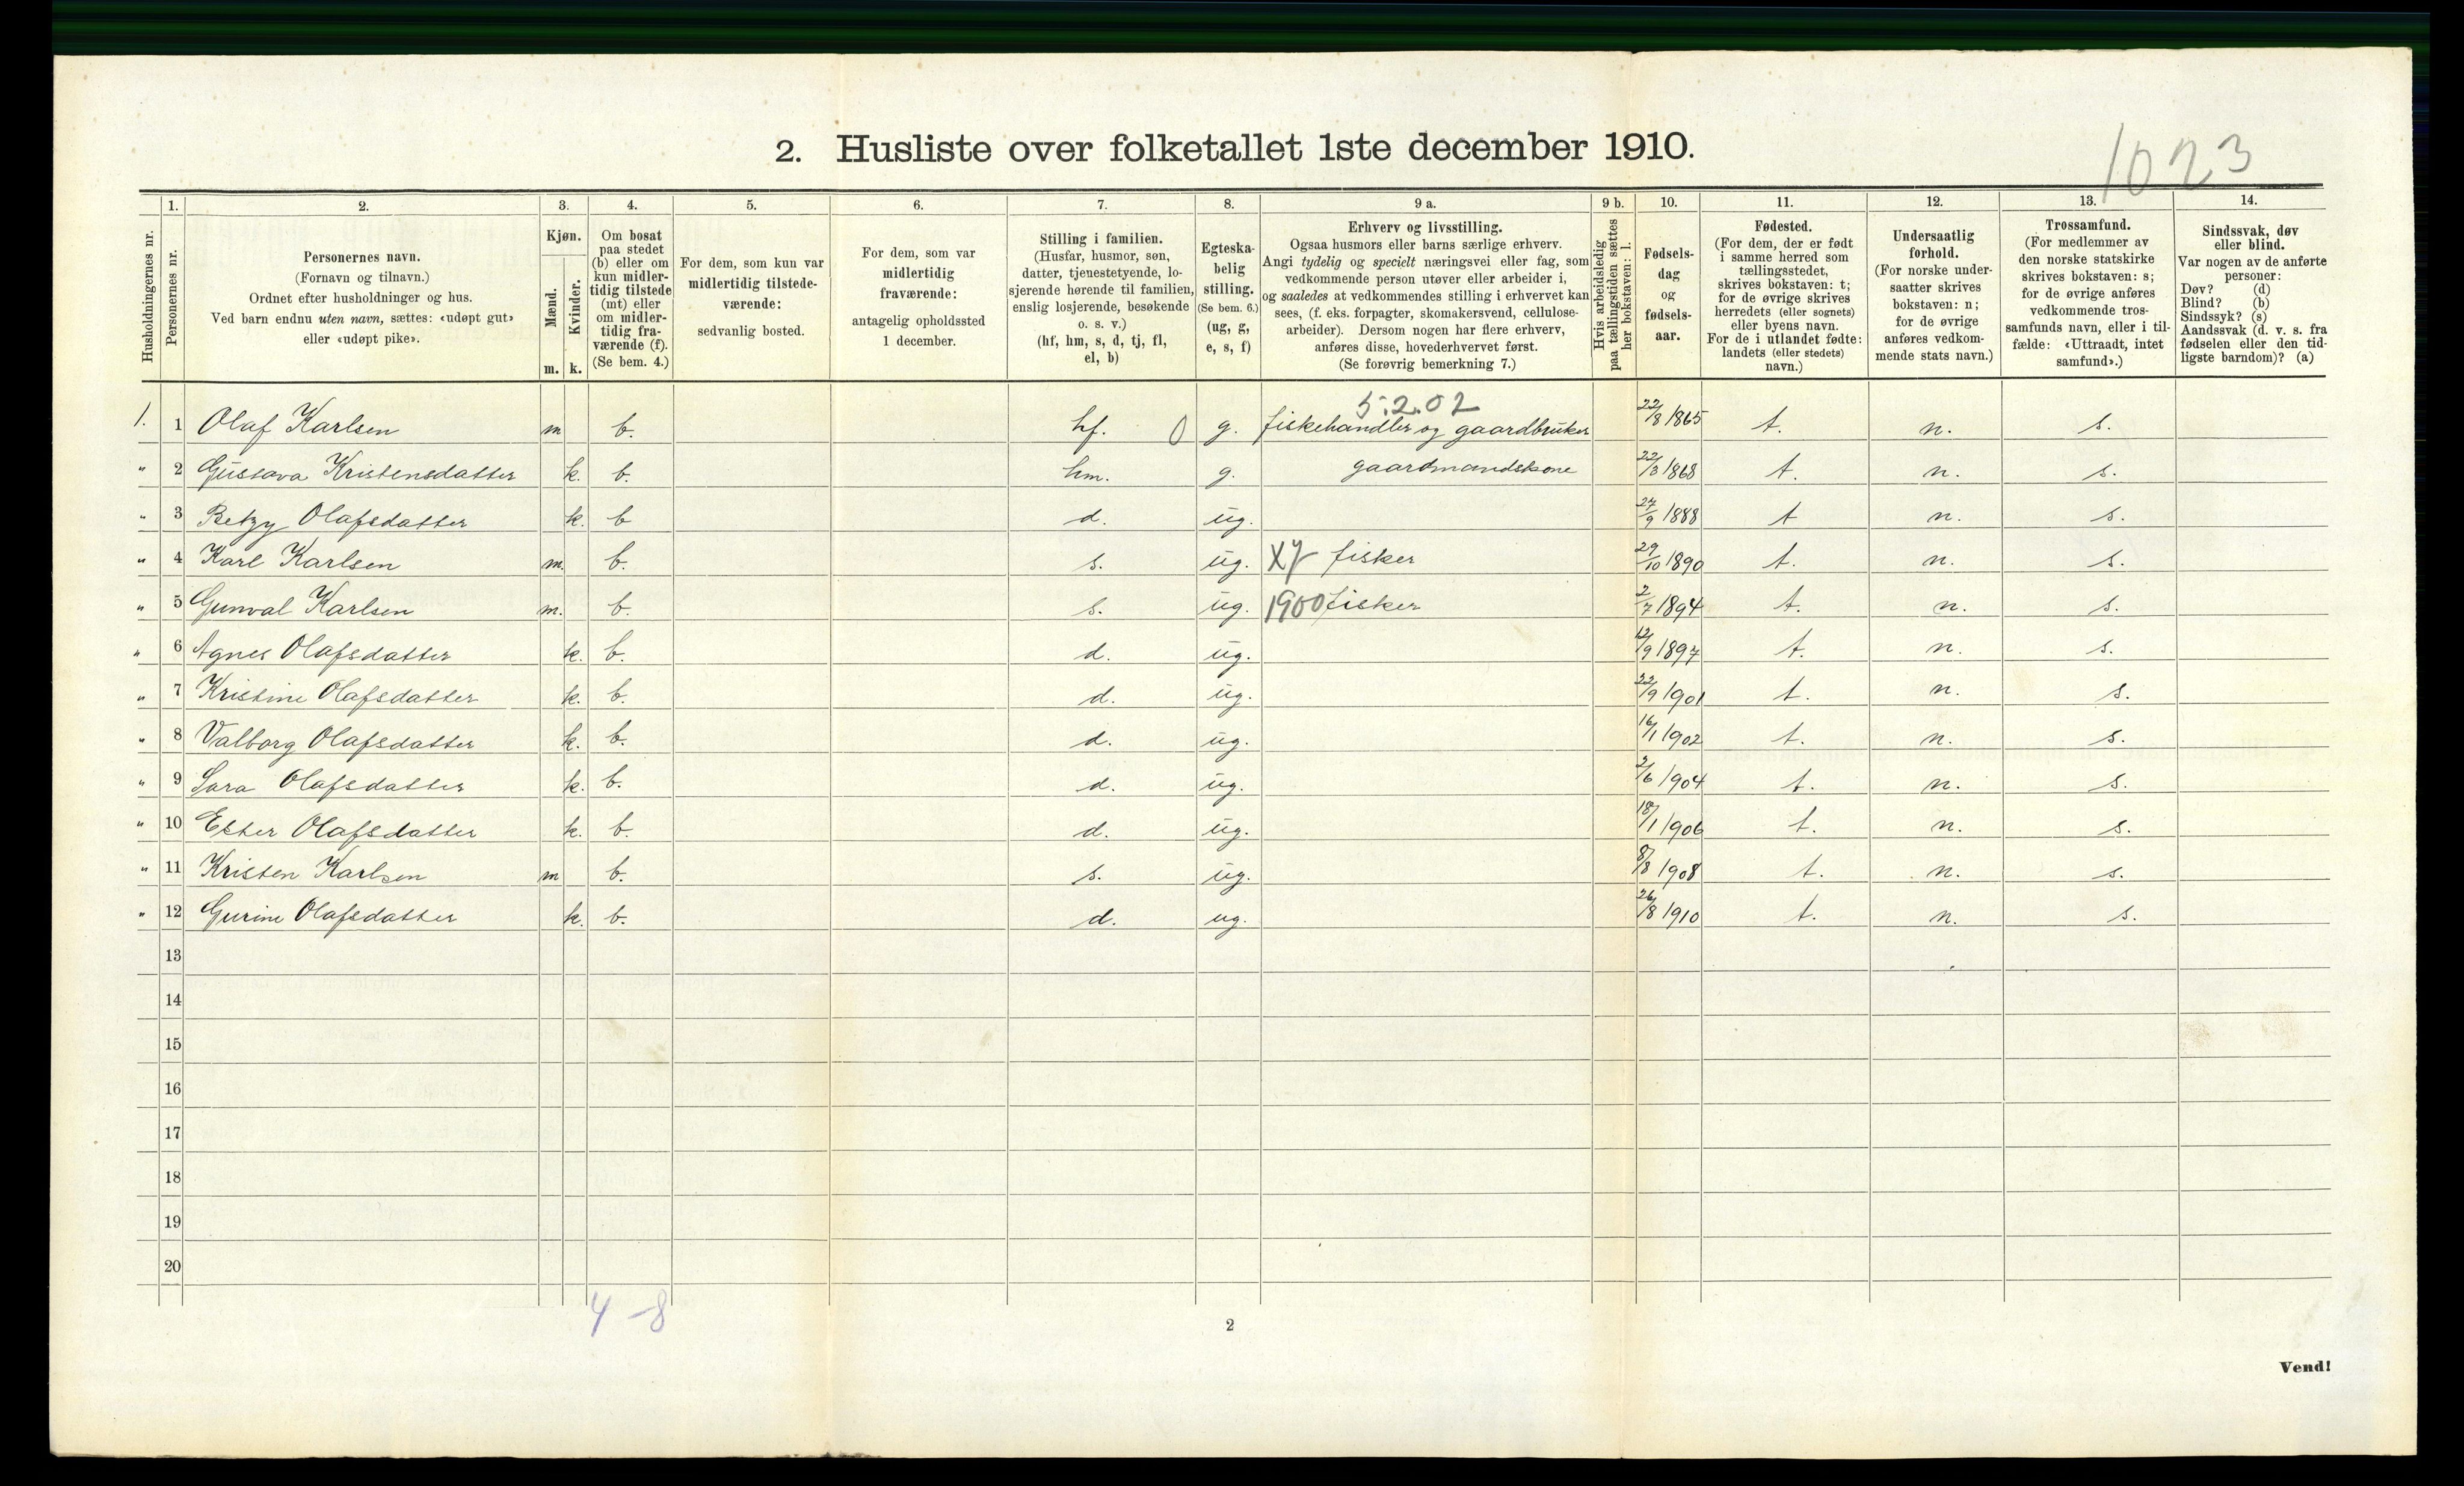 2. Husliste over folketallet 1ste december 1910.
1023
Husholdningernes nr.
1.
Personernes nr.
2.
Personernes navn.
(Fornavn og tilnavn.)
Ordnet efter husholdninger og hus.
Ved barn endnu uten navn, sættes: «udøpt gut»
eller «udøpt pike».
3.
Kjøn.
Mænd.
Kvinder.
m. k.
4.
Om bosat
paa stedet
(b) eller om
kun midler-
tidig tilstede
(mt) eller
om midler-
tidig fra-
værende (f).
(Se bem. 4.)
5.
For dem, som kun var
midlertidig tilstede-
værende:
sedvanlig bosted.
6.
For dem, som var
midlertidig
fraværende:
antagelig opholdssted
1 december.
7.
Stilling i familien.
(Husfar, husmor, søn,
datter, tjenestetyende, lo-
sjerende hørende til familien,
enslig losjerende, besøkende
o. s. v.)
(hf, hm, s, d, tj, fl,
el, b)
8.
Egteska-
belig
stilling.
(Se bem. 6.)
(ug, g,
e, s, f)
9 a.
Erhverv og livsstilling.
Ogsaa husmors eller barns særlige erhverv.
Angi tydelig og specielt næringsvei eller fag, som
vedkommende person utøver eller arbeider i,
og saaledes at vedkommendes stilling i erhvervet kan
sees, (f. eks. forpagter, skomakersvend, cellulose-
arbeider). Dersom nogen har flere erhverv,
anføres disse, hovederhvervet først.
(Se forøvrig bemerkning 7.)
9 b.
Hvis arbeidsledig
paa tællingstiden sættes
her bokstaven: l.
10.
Fødsels-
dag
og
fødsels-
aar.
11.
Fødested.
(For dem, der er født
i samme herred som
tællingsstedet,
skrives bokstaven: t;
for de øvrige skrives
herredets (eller sognets)
eller byens navn.
For de i utlandet fødte:
landets (eller stedets)
navn.)
12.
Undersaatlig
forhold.
(For norske under-
saatter skrives
bokstaven: n;
for de øvrige
anføres vedkom-
mende stats navn.)
13.
Trossamfund.
(For medlemmer av
den norske statskirke
skrives bokstaven: s;
for de øvrige anføres
vedkommende tros-
samfunds navn, eller i til-
fælde: «Uttraadt, intet
samfund».)
14.
Sindssvak, døv
eller blind.
Var nogen av de anførte
personer:
Døv? (d)
Blind? (b)
Sindssyk? (s)
Aandssvak (d. v. s. fra
fødselen eller den tid-
ligste barndom)? (a)
5.2.02
1. 1 Olaf Karlsen m b. hf. 0 g. fiskehandler og gaardbruker 22/8 1865 t. n. s.
" 2 Gustava Kristensdatter k. b. hm. g. gaardmandskone 22/3 1868 t. n. s.
" 3 Betzy Olafsdatter k. b d. ug. 24/9 1888 t n. s.
" 4 Karl Karlsen m. b. s. ug. fisker 29/10 1890 t. n. s.
" 5 Gunval Karlsen m. b. s. ug. 1900 fisker 2/7 1894 t. n. s.
" 6 Agnes Olafsdatter k. b. d. ug. 12/9 1897 t. n. s.
" 7 Kristine Olafsdatter k. b. d. ug. 22/9 1901 t. n. s.
" 8 Valborg Olafsdatter k. b. d. ug. 16/1 1902 t. n. s.
" 9 Sara Olafsdatter k. b. d. ug. 2/6 1904 t. n. s.
" 10 Ester Olafsdatter k. b. d. ug. 18/1 1906 t. n. s.
" 11 Kristen Karlsen m b. s. ug. 8/8 1908 t. n. s.
" 12 Gurine Olafsdatter k. b. d. ug. 26/8 1910 t. n. s.
13
14
15
16
17
18
19
20
4 - 8
2
Vend!